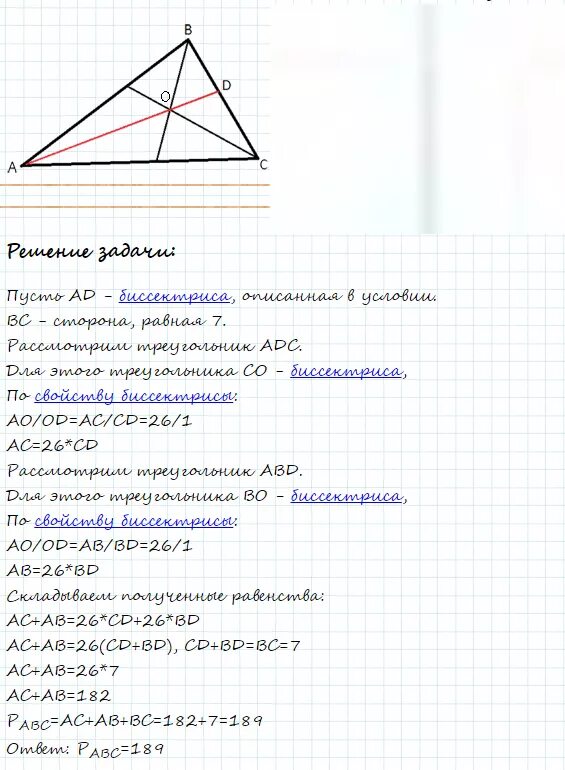 B
D
O
A
C
Решение задачи:
Пусть AD - биссектриса, описанная в условии.
BC - сторона, равная 7.
Рассмотрим треугольник ADC.
Для этого треугольника CO - биссектриса,
По свойству биссектрисы:
AO/OD=AC/CD=26/1
AC=26*CD
Рассмотрим треугольник ABD.
Для этого треугольника BO - биссектриса,
По свойству биссектрисы:
AO/OD=AB/BD=26/1
AB=26*BD
Складываем полученные равенства:
AC+AB=26*CD+26*BD
AC+AB=26(CD+BD), CD+BD=BC=7
AC+AB=26*7
AC+AB=182
PABC=AC+AB+BC=182+7=189
Ответ: PABC=189